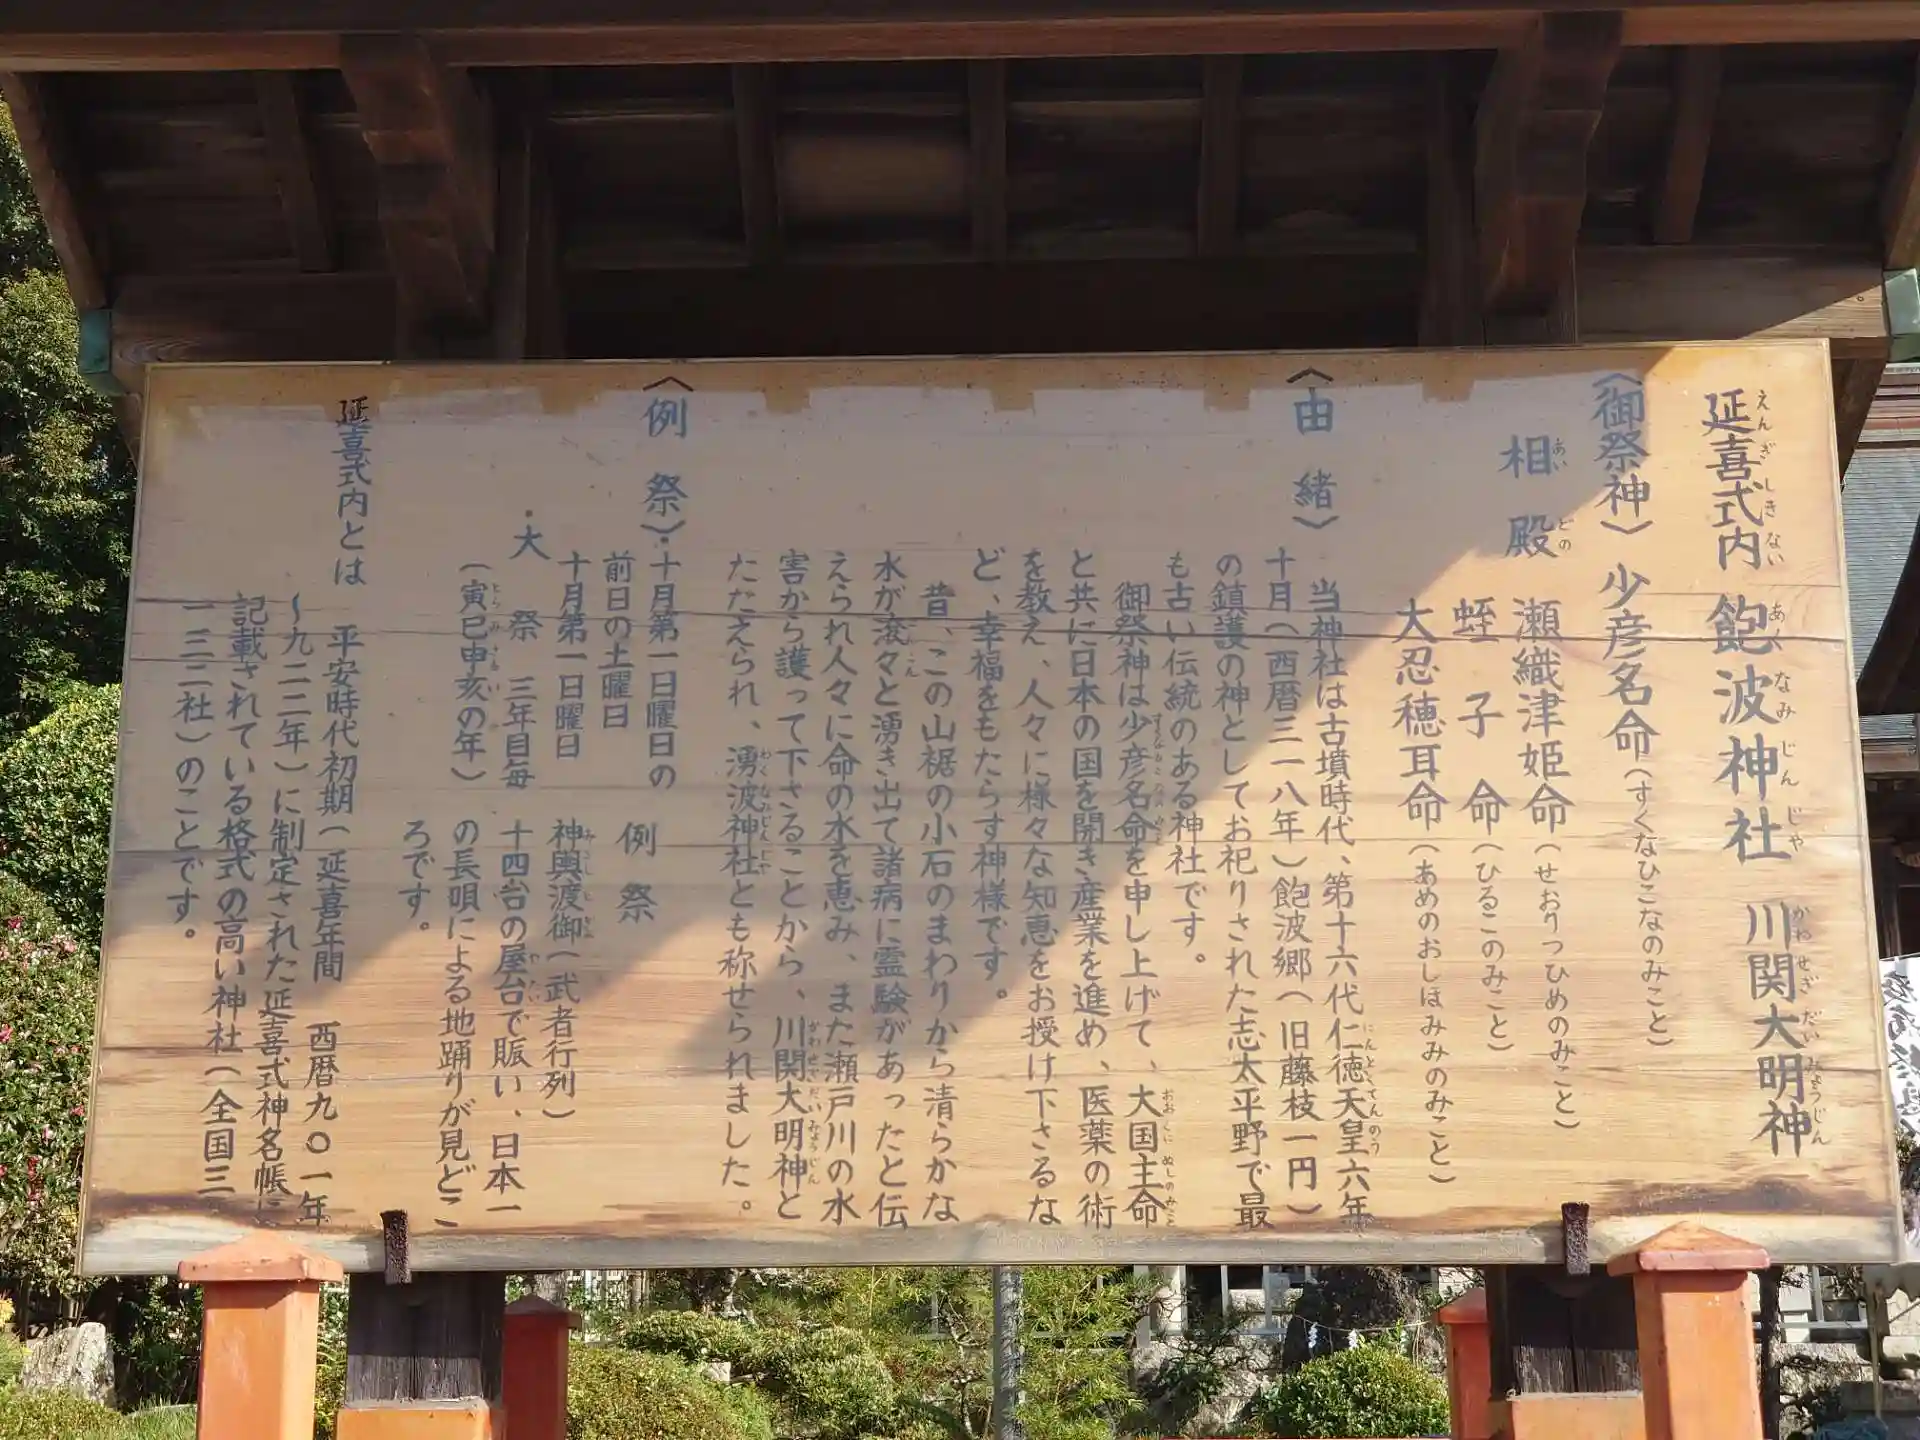 延喜式内 飽波神社 川関大明神
えんぎしきない あくなみじんじゃ かわせぎだいみょうじん
〈御祭神〉 少彦名命(すくなひこなのみこと)
相殿 瀬織津姫命(せおりつひめのみこと)
あいどの
蛭子命(ひるこのみこと)
大忍穂耳命(あめのおしほみみのみこと)
〈由緒〉 当神社は古墳時代、第十六代仁徳天皇六年
にんとくてんのう
十月(西暦三一八年)飽波郷(旧藤枝一円)
の鎮護の神としてお祀りされた志太平野で最
も古い伝統のある神社です。
御祭神は少彦名命を申し上げて、大国主命
すくなひこなのみこと おおくにぬしのみこと
と共に日本の国を開き産業を進め、医薬の術
を教え、人々に様々な知恵をお授け下さるな
ど、幸福をもたらす神様です。
昔、この山裾の小石のまわりから清らかな
水が滾々と湧き出て諸病に霊験があったと伝
こんこん
えられ人々に命の水を恵み、また瀬戸川の水
害から護って下さることから、川関大明神と
かわせぎだいみょうじん
たたえられ、湧波神社とも称せられました。
わくなみじんじゃ
〈例祭〉・十月第一日曜日の 例祭
前日の土曜日
十月第一日曜日 神輿渡御(武者行列)
みこしとぎょ
・大祭 三年目毎 十四台の屋台で賑い、日本一
やたい
(寅巳申亥の年) の長唄による地踊りが見どこ
とらみさるい
ろです。
延喜式内とは 平安時代初期(延喜年間 西暦九〇一年
〜九二二年)に制定された延喜式神名帳に
記載されている格式の高い神社(全国三
一三二社)のことです。